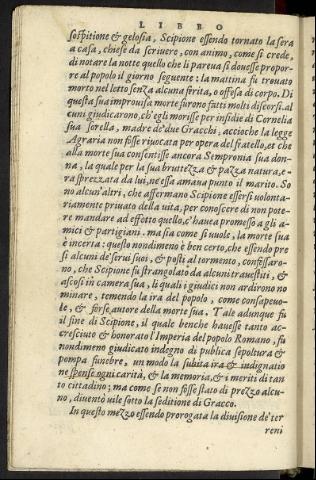 LIBRO
sospitione & gelosia, Scipione essendo tornato la sera
a casa, chiese da scriuere, con animo, come si crede,
di notare la notte quello che li pareua si douesse propor-
re al popolo il giorno seguente: la mattina fu trouato
morto nel letto senza alcuna ferita, o offesa di corpo. Di
questa sua improuisa morte furono fatti molti discorsi. al
cuni giudicarono, ch'egli morisse per insidie di Cornelia
sua sorella, madre de' due Gracchi, accioche la legge
Agraria non fosse riuocata per opera del fratello, et che
alla morte sua consentisse ancora Sempronia sua don-
na, la quale per la sua bruttezza & pazza natura, e-
ra sprezzata da lui, ne essa amaua punto il marito. So
no alcun'altri, che affermano Scipione essersi volonta-
riamente priuato della uita, per conoscere di non pote-
re mandare ad effetto quello, c'hauea promesso a gli a-
mici & partigiani. ma sia come si uuole, la morte sua
è incerta: questo nondimeno è ben certo, che essendo pre
si alcuni de' serui suoi, & posti al tormento, confessaro-
no, che Scipione fu strangolato da alcuni trauestiti, &
ascosi in camera sua, li quali i giudici non ardirono no
minare, temendo la ira del popolo, come consapeuo-
le, & forse autore della morte sua. Tale adunque fu
il fine di Scipione, il quale benche hauesse tanto ac-
cresciuto & honorato l'Imperio del popolo Romano, fu
nondimeno giudicato indegno di publica sepoltura &
pompa funebre, un modo la subita ira & indignatio
ne spense ogni carità, & la memoria, & i meriti di tan
to cittadino; ma come se non fosse stato di prezzo alcu-
no, diuentò uile sotto la seditione di Gracco.
In questo mezzo essendo prorogata la diuisione de' ter
reni